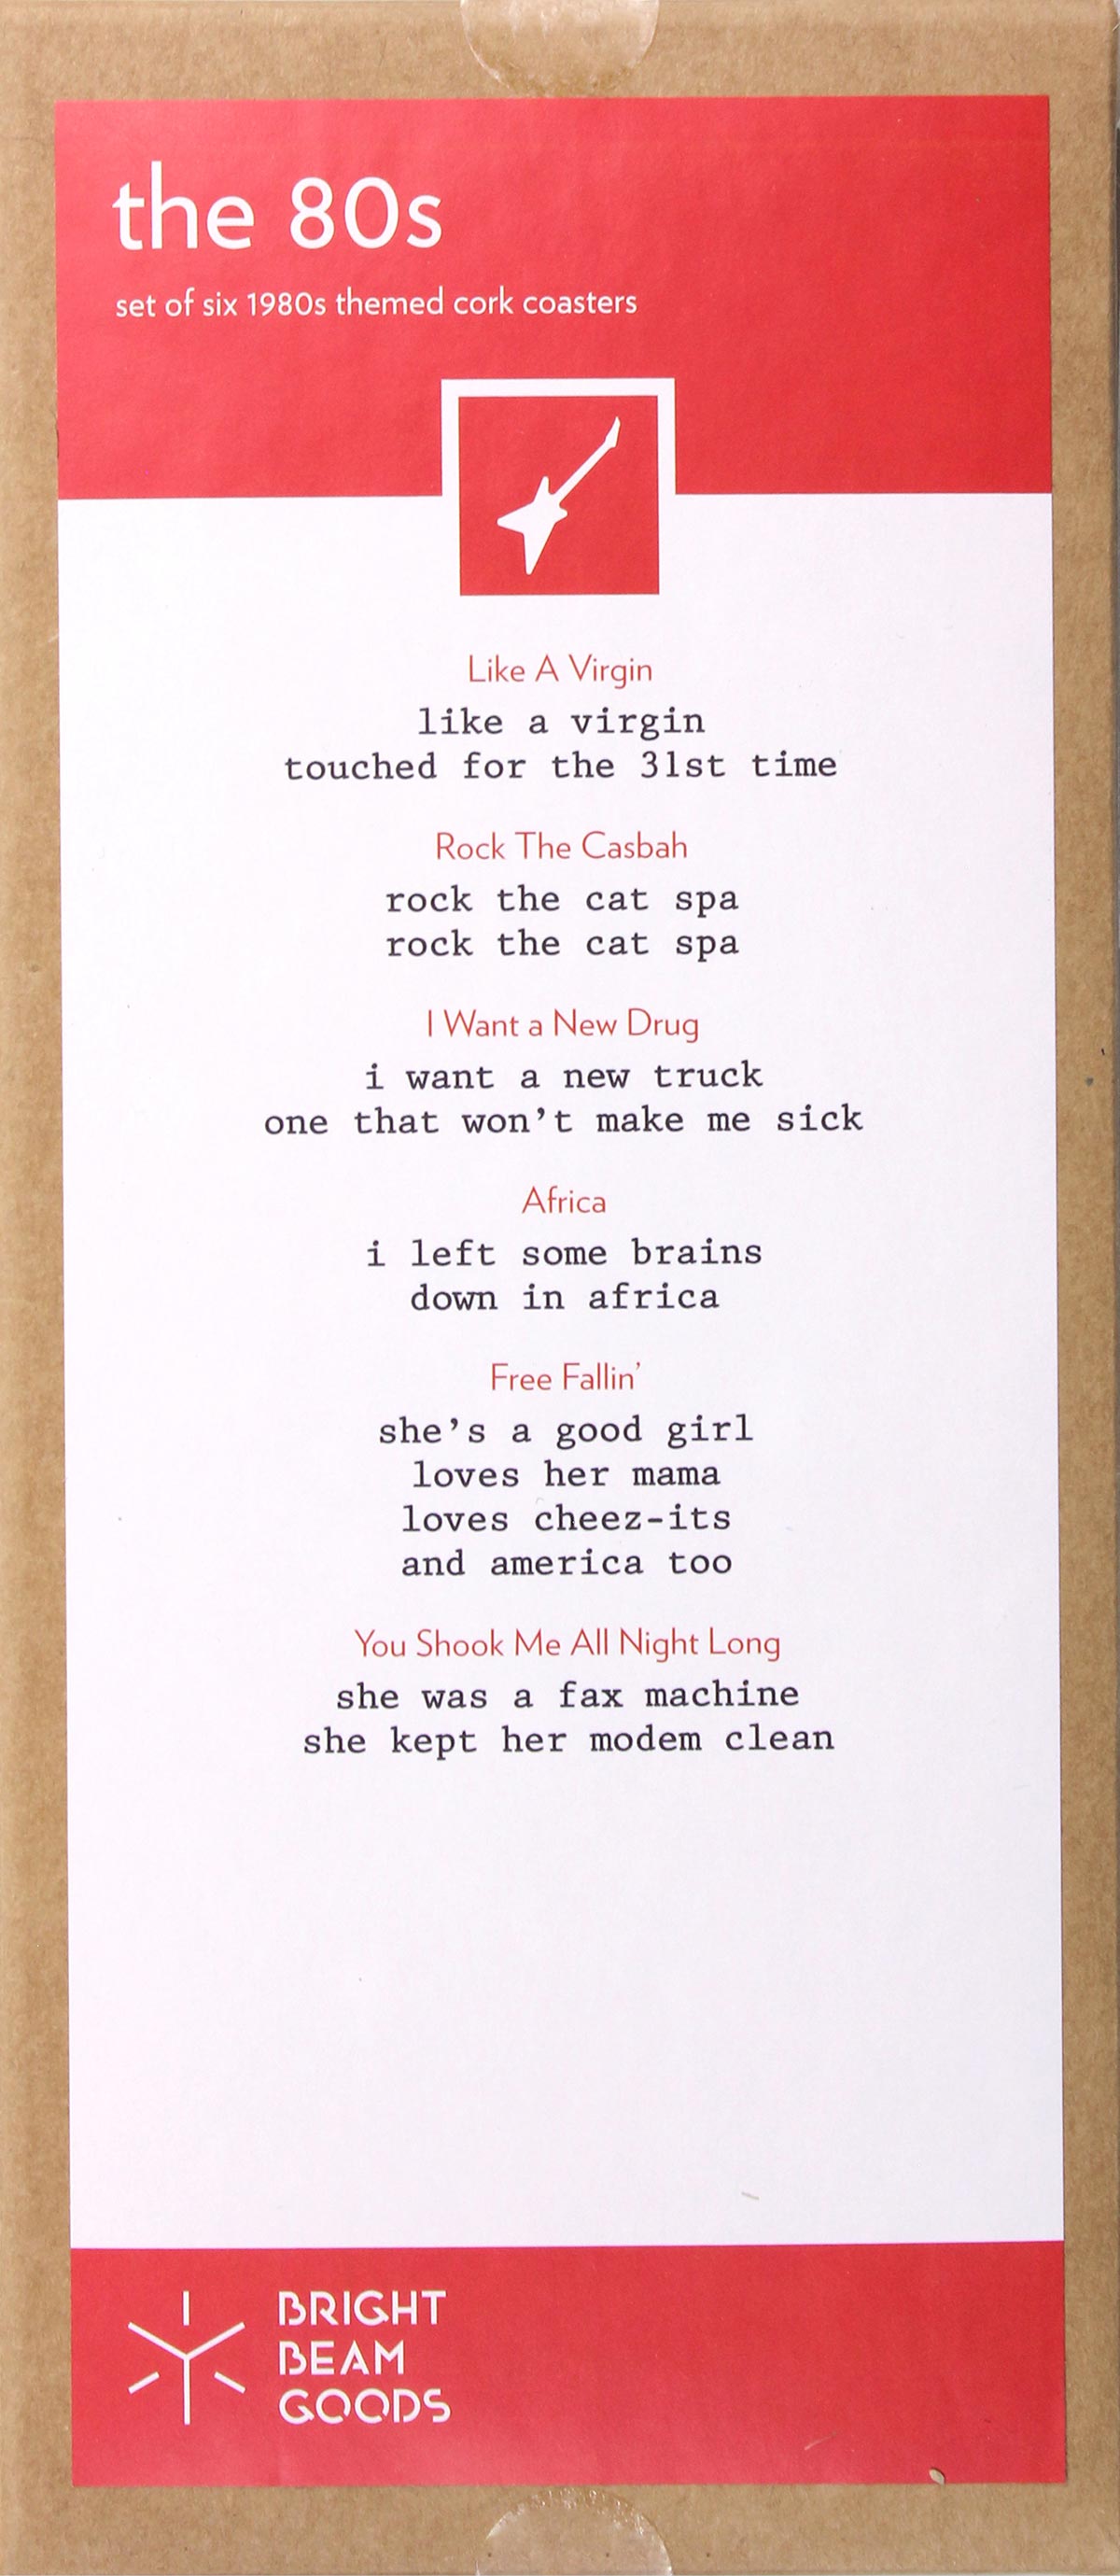 the 80s
set of six 1980s themed cork coasters
Like A Virgin
like a virgin
touched for the 31st time
Rock The Casbah
rock the cat spa
rock the cat spa
I Want a New Drug
i want a new truck
one that won't make me sick
Africa
i left some brains
down in africa
Free Fallin'
she's a good girl
loves her mama
loves cheez-its
and america too
You Shook Me All Night Long
she was a fax machine
she kept her modem clean
BRIGHT
BEAM
GOODS